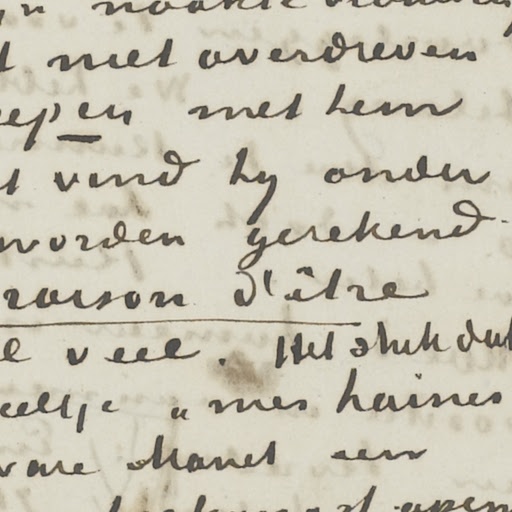 niet overdreven
epen met hem
vind hy onder
worden gerekend
raison d'être
veel. Het stuk dat
eeltje "mes haines
ware Manet een